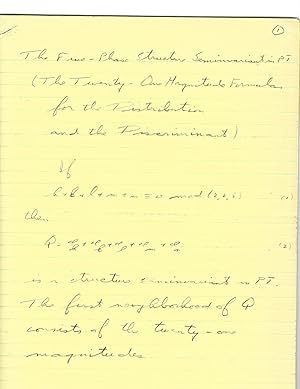 1
The Five-Phase Structure Seminvariant in P1
(The Twenty-One Magnitude Formulas
for the Distribution
and the Discriminant)
If
h+k+l+m+n ≡ 0 mod (2,2,2) (1)
then
Q = φh + φk + φl + φm + φn (2)
is a structure seminvariant in P1.
The first neighborhood of Q
consists of the twenty-one
magnitudes